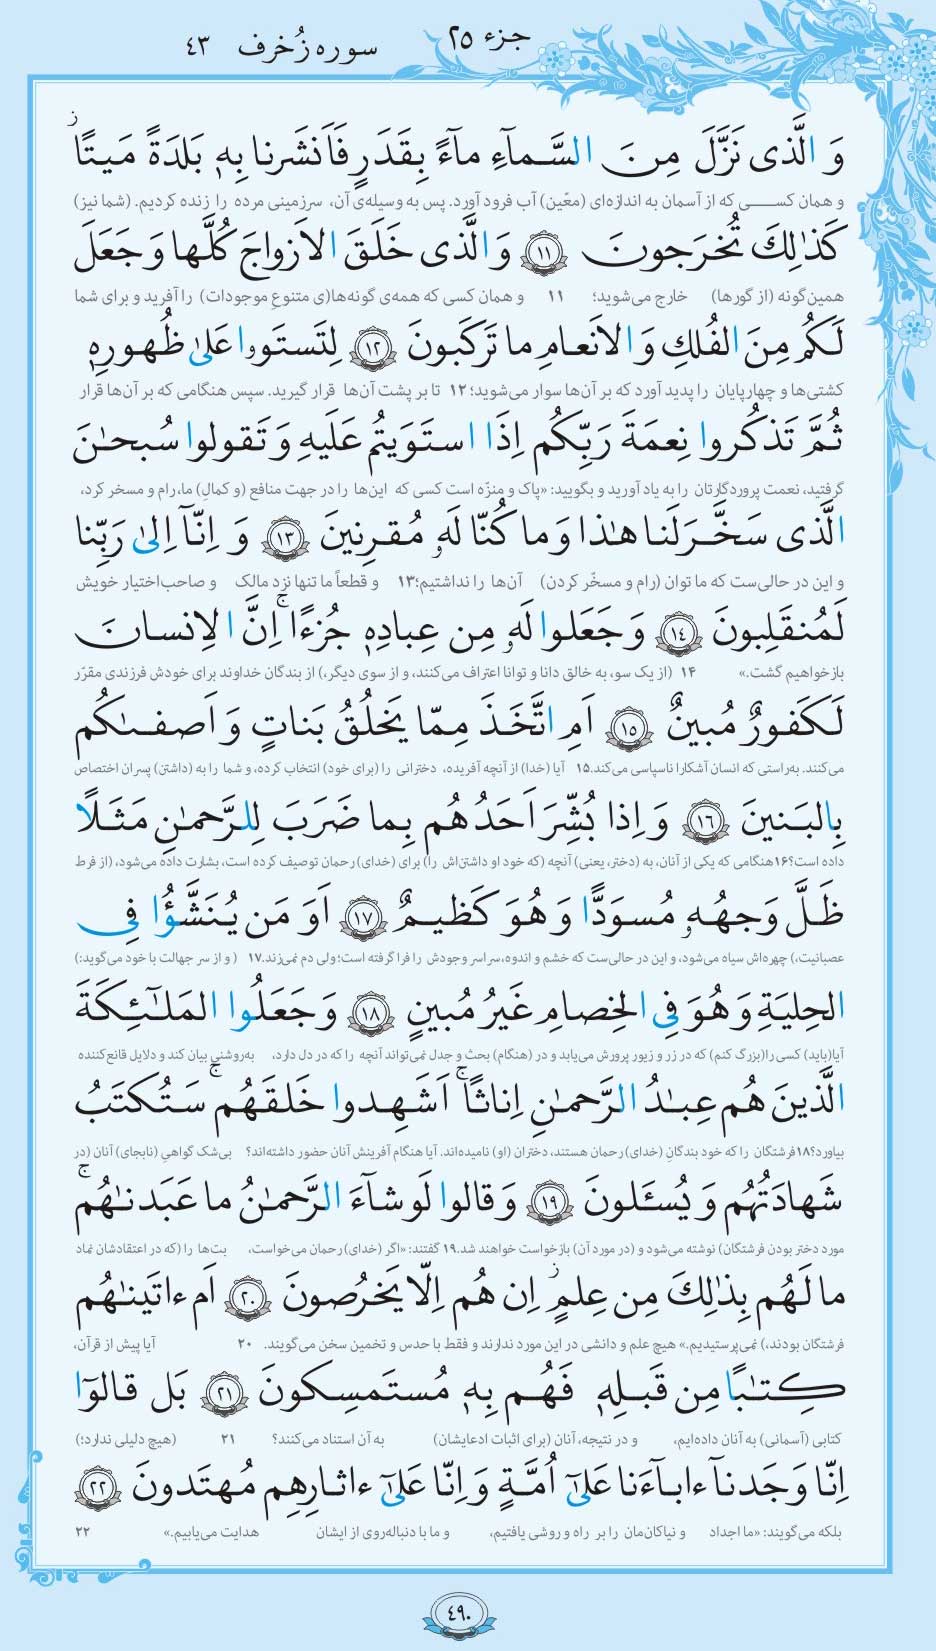 جزء ۲۵
سوره زُخرف ۴۳
وَ الَّذی نَزَّلَ مِنَ السَّمآءِ مآءً بِقَدَرٍ فَاَنشَرنا بِهٖ بَلدَةً مَیتًا ز
و همان کســـی که از آسمان به اندازه‌ای (معیّن) آب فرود آورد. پس به وسیله‌ی آن، سرزمینی مرده را زنده کردیم. (شما نیز)
کَذٰلِكَ تُخرَجونَ ﴿۱۱﴾ وَ الَّذی خَلَقَ الاَزواجَ کُلَّها وَ جَعَلَ
همین‌گونه (از گورها) خارج می‌شوید؛ ۱۱ و همان کسی که همه‌ی گونه‌ها(ی متنوع موجودات) را آفرید و برای شما
لَکُم مِنَ الفُلكِ وَ الاَنعامِ ما تَرکَبونَ ﴿۱۲﴾ لِتَستَوۥا عَلیٰ ظُهورِهٖ
کشتی‌ها و چهارپایان را پدید آورد که بر آن‌ها سوار می‌شوید؛ ۱۲ تا بر پشت آن‌ها قرار گیرید. سپس هنگامی که بر آن‌ها قرار
ثُمَّ تَذکُروا نِعمَةَ رَبِّکُم اِذَا استَوَیتُم عَلَیهِ وَ تَقولوا سُبحٰنَ
گرفتید، نعمت پروردگارتان را به یاد آورید و بگویید: «پاک و منزّه است کسی که این‌ها را در جهت منافع (و کمالِ) ما، رام و مسخر کرد،
الَّذی سَخَّرَ لَنا هٰذا وَ ما کُنّا لَهٗ مُقرِنینَ ﴿۱۳﴾ وَ اِنّآ اِلیٰ رَبِّنا
و این در حالی‌ست که ما توان (رام و مسخّر کردن) آن‌ها را نداشتیم؛ ۱۳ و قطعاً ما تنها نزد مالک و صاحب‌اختیار خویش
لَمُنقَلِبونَ ﴿۱۴﴾ وَ جَعَلوا لَهٗ مِن عِبادِهٖ جُزءًا ۚ اِنَّ الاِنسانَ
بازخواهیم گشت.» ۱۴ (از یک سو، به خالق دانا و توانا اعتراف می‌کنند، و از سوی دیگر،) از بندگان خداوند برای خودش فرزندی مقرّر
لَکَفورٌ مُبینٌ ﴿۱۵﴾ اَمِ اتَّخَذَ مِمّا یَخلُقُ بَناتٍ وَ اَصفىٰکُم
می‌کنند. به‌راستی که انسان آشکارا ناسپاسی می‌کند. ۱۵ آیا (خدا) از آنچه آفریده، دخترانی را (برای خود) انتخاب کرده، و شما را به (داشتن) پسران اختصاص
بِالبَنینَ ﴿۱۶﴾ وَ اِذا بُشِّرَ اَحَدُهُم بِما ضَرَبَ لِلرَّحمٰنِ مَثَلًا
داده است؟ ۱۶ هنگامی که یکی از آنان، به (دختر، یعنی) آنچه (که خود او داشتن‌اش را) برای (خدای) رحمان توصیف کرده است، بشارت داده می‌شود، (از فرط
ظَلَّ وَجهُهٗ مُسوَدًّا وَ هُوَ کَظیمٌ ﴿۱۷﴾ اَوَ مَن یُنَشَّؤُا فِی
عصبانیت،) چهره‌اش سیاه می‌شود، و این در حالی‌ست که خشم و اندوه، سراسر وجودش را فرا گرفته است؛ ولی دم نمی‌زند. ۱۷ (و از سر جهالت با خود می‌گوید:)
الحِلیَةِ وَ هُوَ فِی الخِصامِ غَیرُ مُبینٍ ﴿۱۸﴾ وَ جَعَلُوا المَلٰٓئِکَةَ
آیا (باید) کسی را (بزرگ کنم) که در زر و زیور پرورش می‌یابد و در (هنگام) بحث و جدل نمی‌تواند آنچه را که در دل دارد، به‌روشنی بیان کند و دلایل قانع‌کننده
الَّذینَ هُم عِبٰدُ الرَّحمٰنِ اِناثًا ۚ اَشَهِدوا خَلقَهُم ۚ سَتُکتَبُ
بیاورد؟ ۱۸ فرشتگان را که خود بندگانِ (خدای) رحمان هستند، دختران (او) نامیده‌اند. آیا هنگام آفرینش آنان حضور داشته‌اند؟ بی‌شک گواهیِ (نابجای) آنان (در
شَهادَتُهُم وَ یُسـَٔلونَ ﴿۱۹﴾ وَ قالوا لَو شآءَ الرَّحمٰنُ ما عَبَدنٰهُم ۚ
مورد دختر بودن فرشتگان) نوشته می‌شود و (در مورد آن) بازخواست خواهند شد. ۱۹ گفتند: «اگر (خدای) رحمان می‌خواست، بت‌ها را (که در اعتقادشان نماد
ما لَهُم بِذٰلِكَ مِن عِلمٍ ز اِن هُم اِلّا یَخرُصونَ ﴿۲۰﴾ اَم ءاتَینٰهُم
فرشتگان بودند،) نمی‌پرستیدیم.» هیچ علم و دانشی در این مورد ندارند و فقط با حدس و تخمین سخن می‌گویند. ۲۰ آیا پیش از قرآن،
کِتٰبًا مِن قَبلِهٖ فَهُم بِهٖ مُستَمسِکونَ ﴿۲۱﴾ بَل قالوٓا
کتابی (آسمانی) به آنان داده‌ایم، و در نتیجه، آنان (برای اثبات ادعایشان) به آن استناد می‌کنند؟ ۲۱ (هیچ دلیلی ندارد؛)
اِنّا وَجَدنآ ءابآءَنا عَلیٰٓ اُمَّةٍ وَ اِنّا عَلیٰٓ ءاثارِهِم مُهتَدونَ ﴿۲۲﴾
بلکه می‌گویند: «ما اجداد و نیاکان‌مان را بر راه و روشی یافتیم، و ما با دنباله‌روی از ایشان هدایت می‌یابیم.» ۲۲
۴۹۰